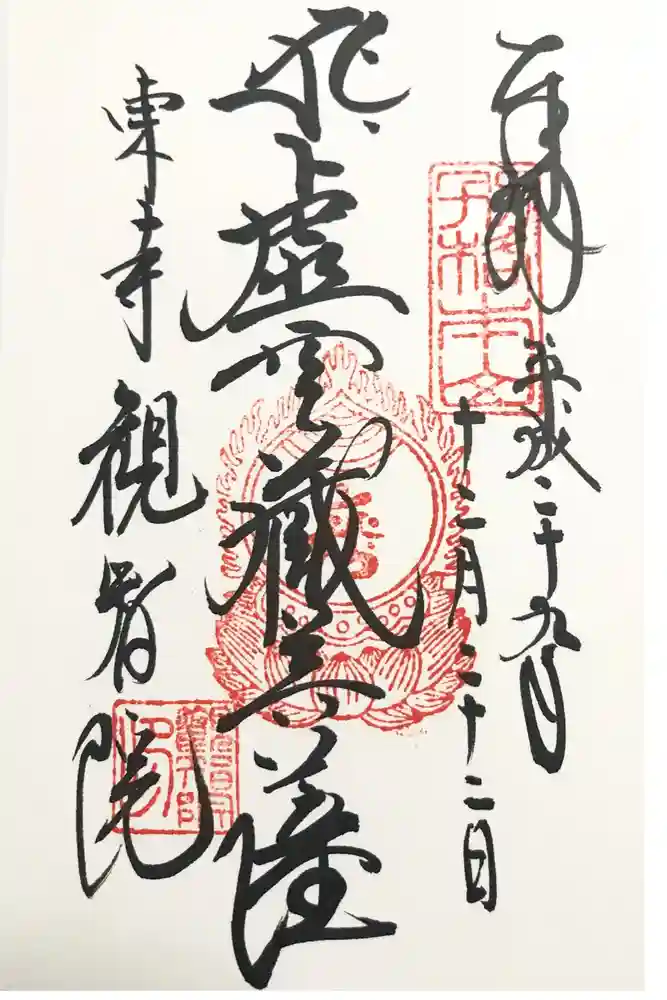 奉拝 平成二十九年
十二月二十二日
虚空蔵菩薩
東寺 観智院